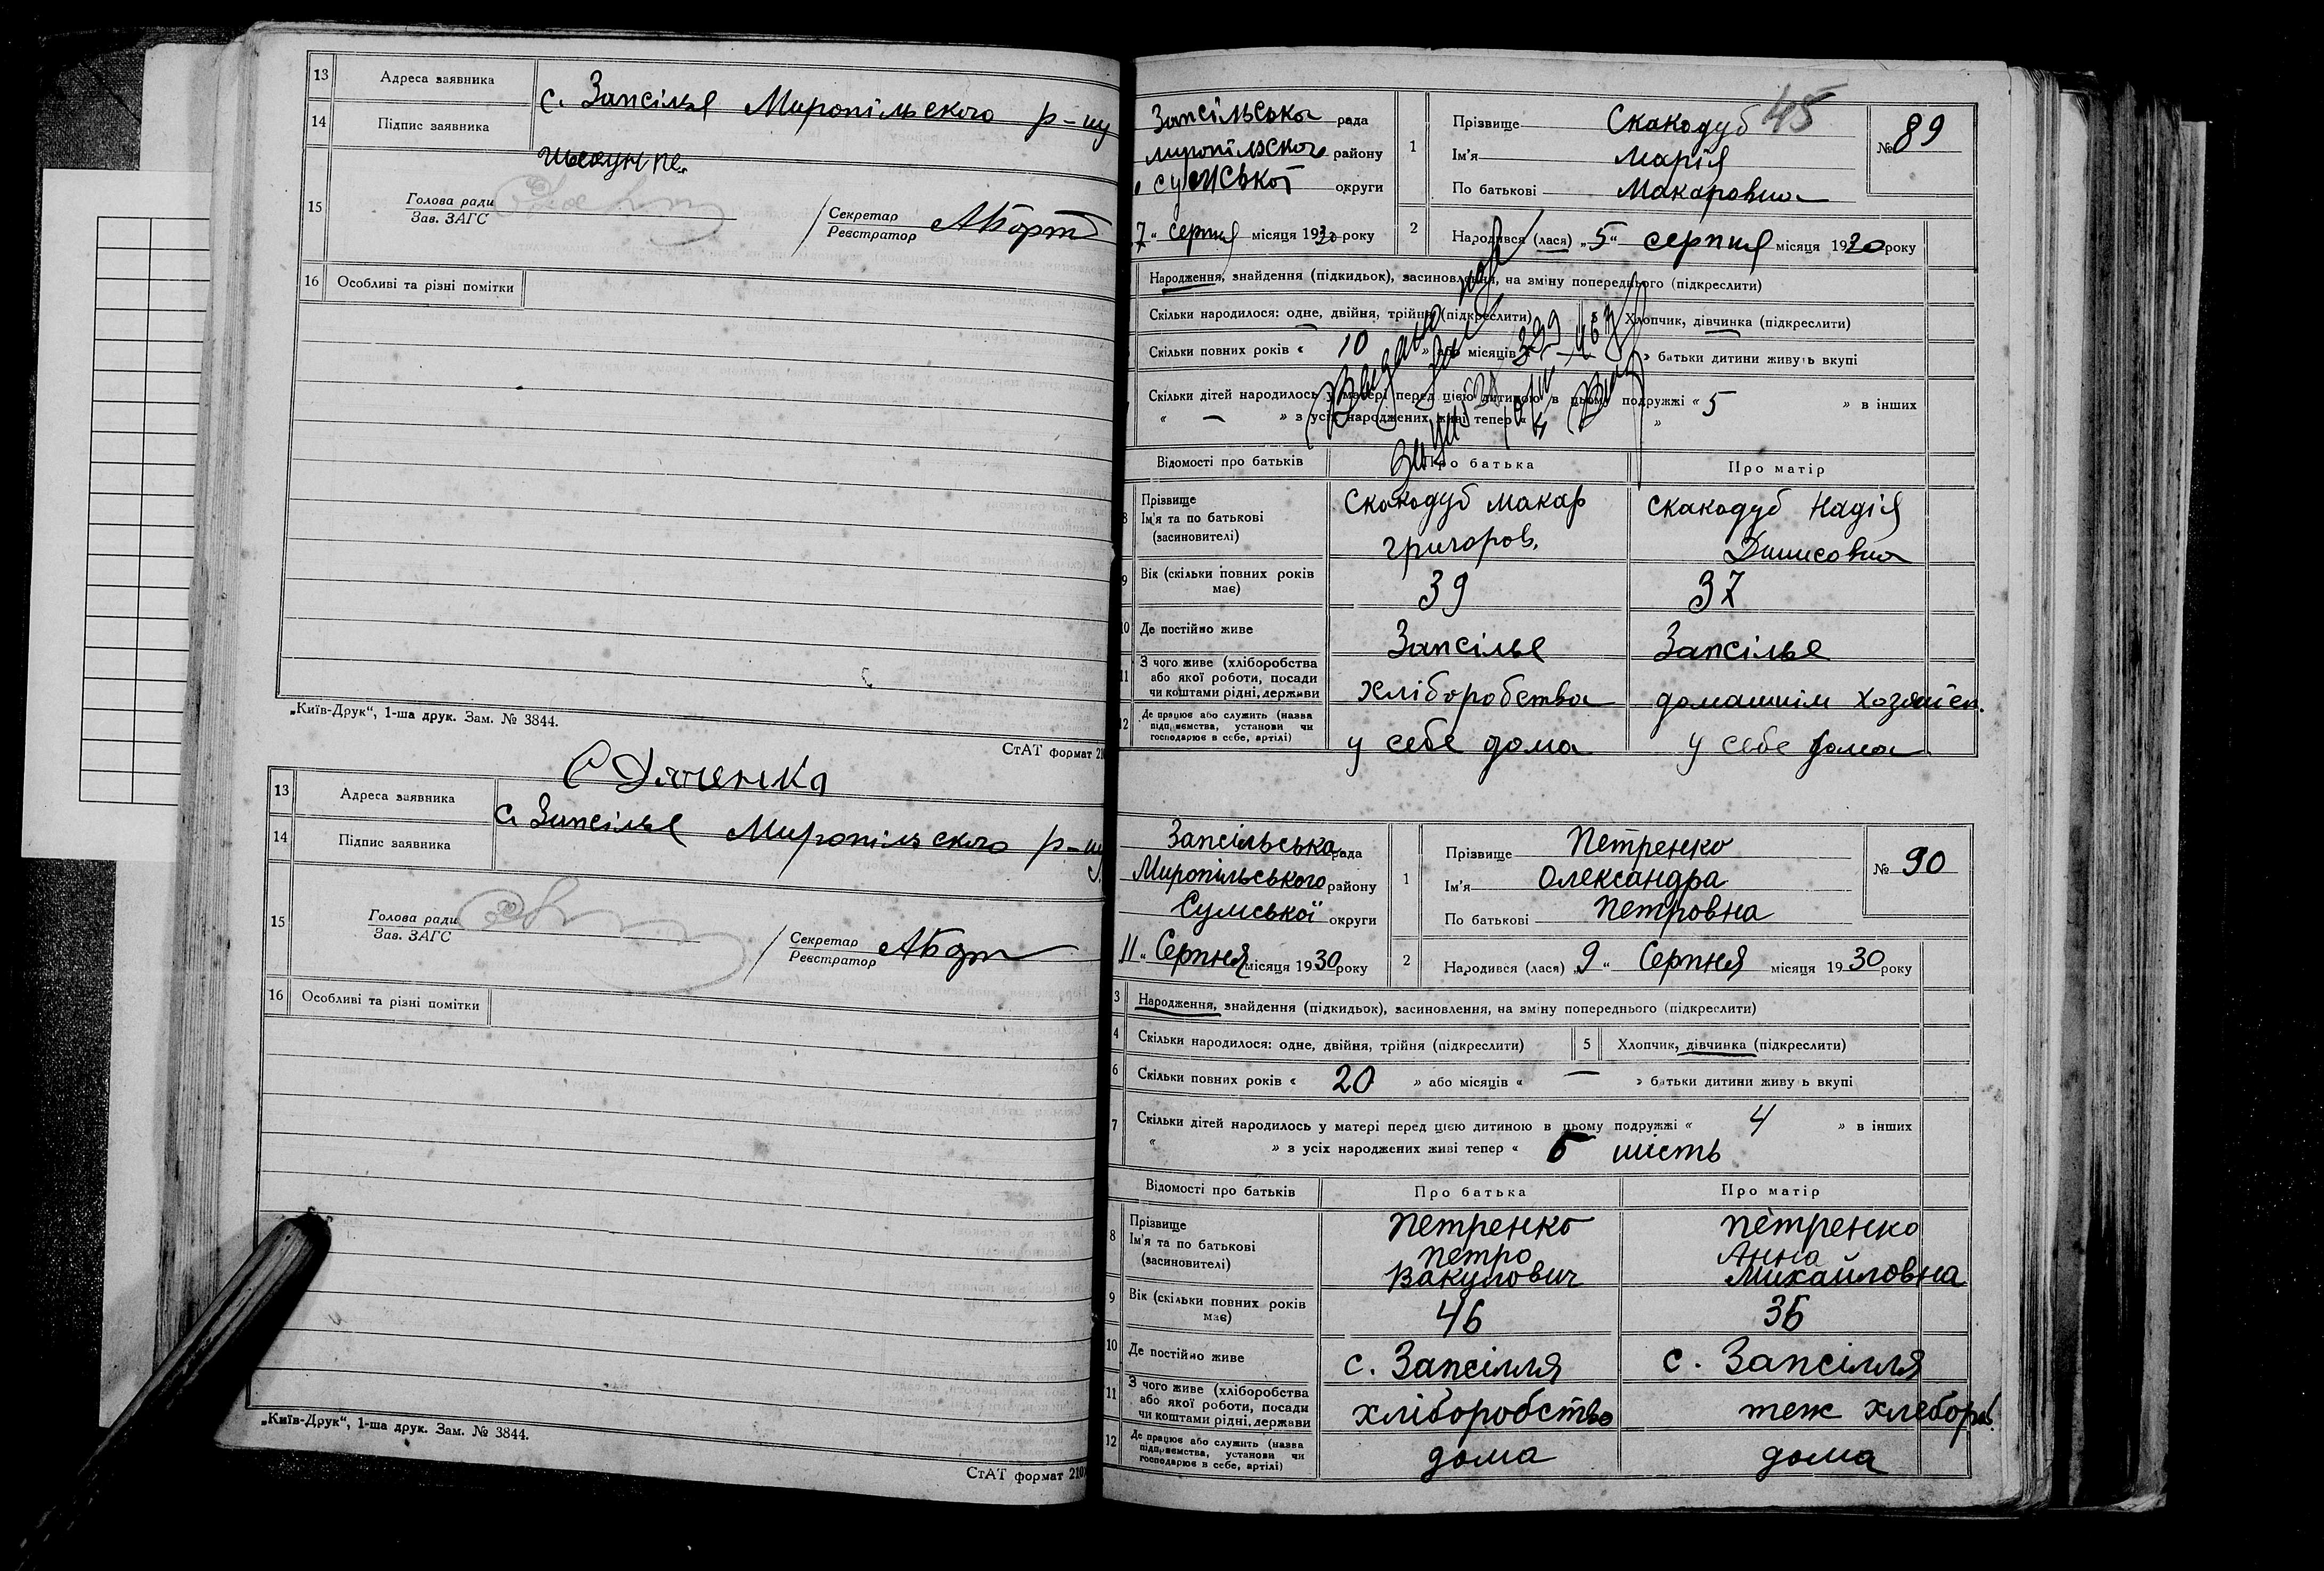 13 Адреса заявника с. Запсілье Миропільского р-ну
14 Підпис заявника
15 Голова ради
Зав. ЗАГС
Секретар
Реєстратор
16 Особливі та різні помітки
„Київ-Друк“, 1-ша друк. Зам. № 3844.
СтАТ формат 210
13 Адреса заявника
с. Запсілье Миропільского р-ну
14 Підпис заявника
15 Голова ради
Зав. ЗАГС
Секретар
Реєстратор
16 Особливі та різні помітки
„Київ-Друк“, 1-ша друк. Зам. № 3844.
СтАТ формат 210
45
Запсільська рада
миропільског району
сумської округи
7“ серпня місяця 1930 року
1 Прізвище Скакодуб
Ім'я Марія
По батькові Макаровна
№ 89
2 Народився (лася) „5“ серпня місяця 1930 року
Народження, знайдення (підкидьок), засиновлення, на зміну попереднього (підкреслити)
Скільки народилося: одне, двійня, трійня (підкреслити) 5 Хлопчик, дівчинка (підкреслити)
Скільки повних років « 10 » або місяців « » батьки дитини живуть вкупі
Скільки дітей народилось у матері перед цією дитиною в цьому подружжі « 5 » в інших
« — » з усіх народжених живі тепер « »
Відомості про батьків Про батька Про матір
8 Прізвище
Ім'я та по батькові
(засиновителі)
Скакодуб Макар
григоров.
Скакодуб Надія
Динисовна
9 Вік (скільки повних років має) 39 37
10 Де постійно живе Запсілье Запсілье
11 З чого живе (хліборобства
або якої роботи, посади
чи коштами рідні, держави
хліборобства домашнім хозяйст.
12 Де працює або служить (назва
підприємства, установи чи
господарює в себе, артілі)
у себе дома у себе дома
Запсільська рада
Миропільського району
Сумської округи
11“ Серпня місяця 1930 року
1 Прізвище Петренко
Ім'я Олександра
По батькові Петровна
№ 90
2 Народився (лася) „9“ Серпня місяця 1930 року
3 Народження, знайдення (підкидьок), засиновлення, на зміну попереднього (підкреслити)
4 Скільки народилося: одне, двійня, трійня (підкреслити) 5 Хлопчик, дівчинка (підкреслити)
6 Скільки повних років « 20 » або місяців « — » батьки дитини живуть вкупі
7 Скільки дітей народилось у матері перед цією дитиною в цьому подружжі « 4 » в інших
« » з усіх народжених живі тепер « 6 шість
Відомості про батьків Про батька Про матір
8 Прізвище
Ім'я та по батькові
(засиновителі)
Петренко
Петро
Вакулович
Петренко
Анна
Михайловна
9 Вік (скільки повних років має) 46 36
10 Де постійно живе с. Запсілля с. Запсілля
11 З чого живе (хліборобства
або якої роботи, посади
чи коштами рідні, держави
хліборобство теж хлебороб.
12 Де працює або служить (назва
підприємства, установи чи
господарює в себе, артілі)
дома дома